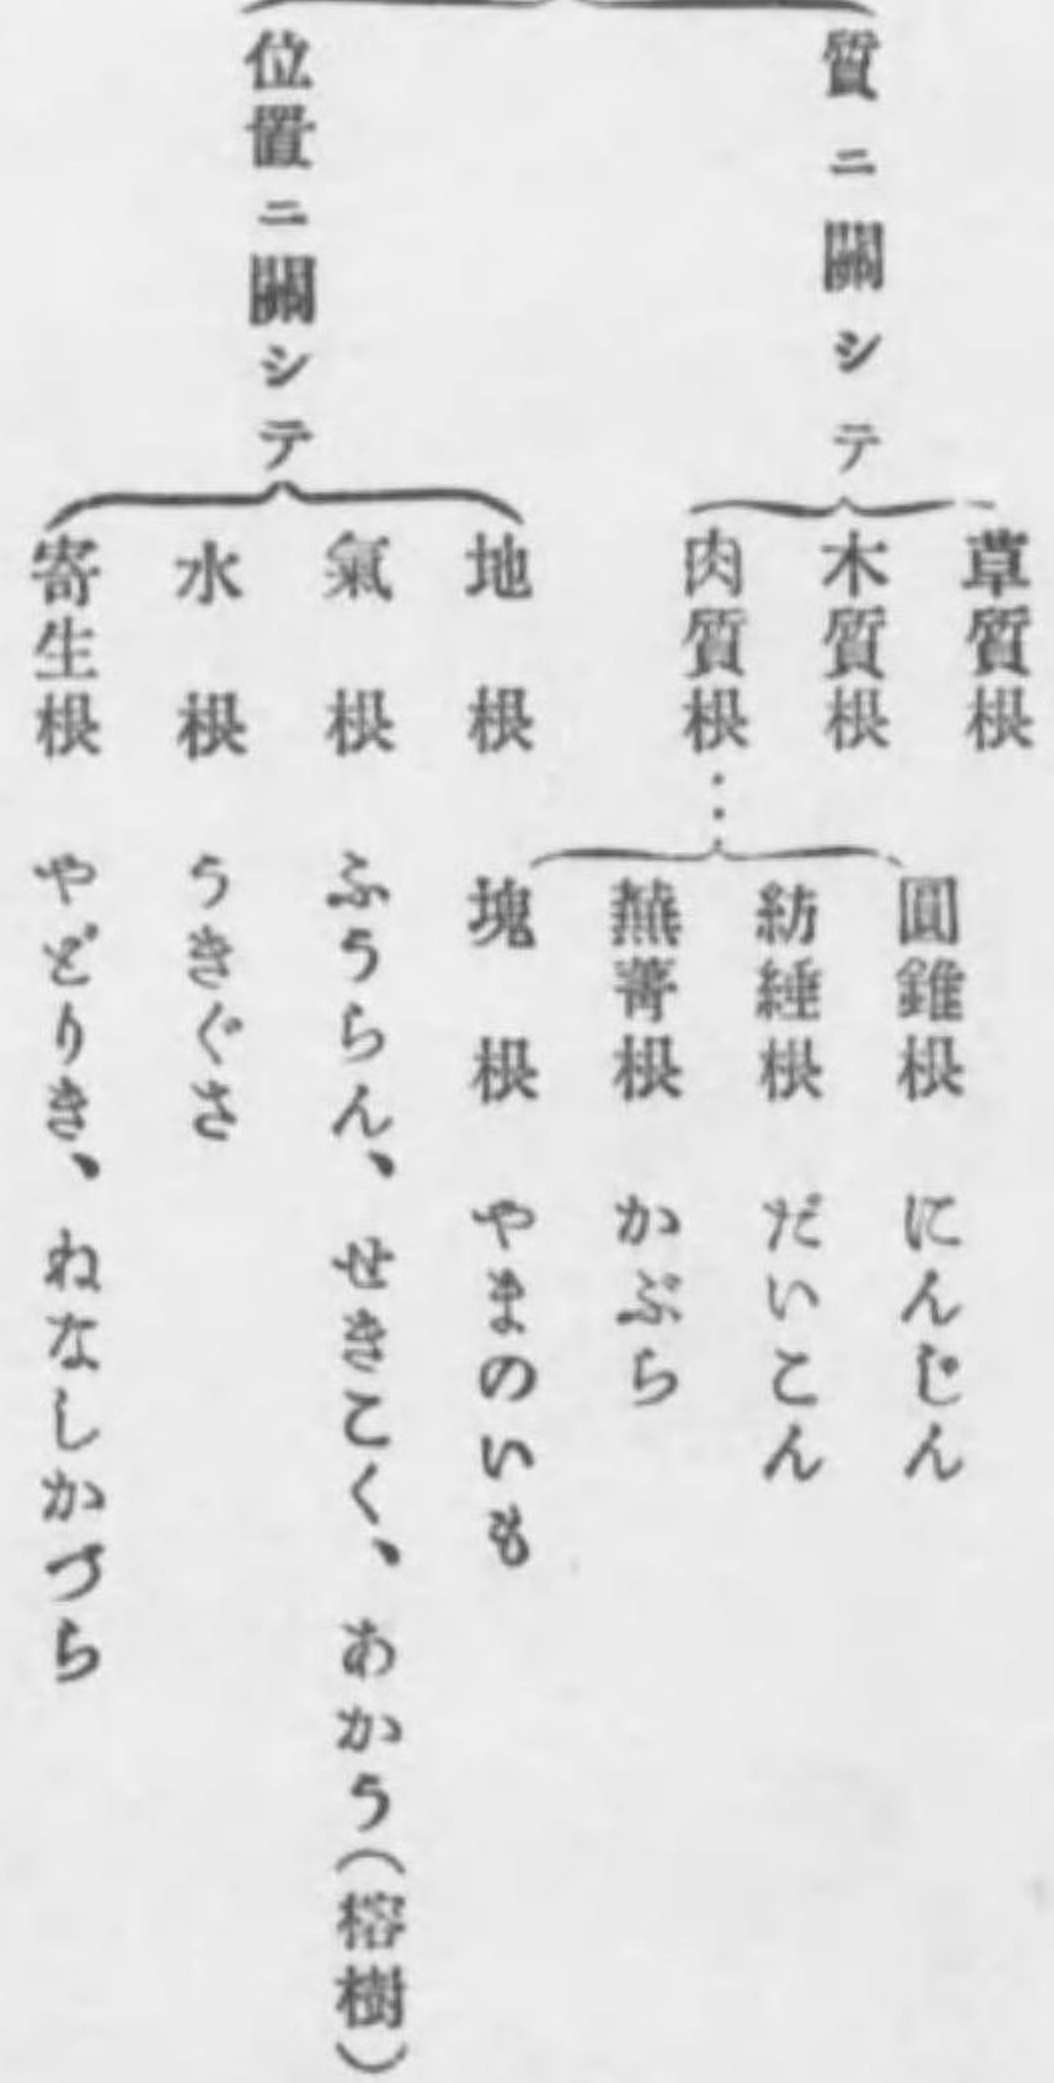 質ニ關シテ
草質根
木質根
肉質根…
圓錐根 にんじん
紡綞根 だいこん
蕪菁根 かぶら
塊根 やまのいも
位置ニ關シテ
地根
氣根 ふうらん、せきこく、あかう(榕樹)
水根 うきぐさ
寄生根 やどりき、ねなしかづら